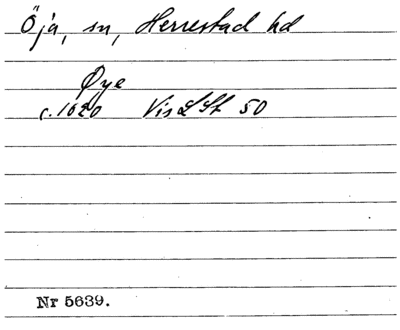 Öja, sn, Herrestad hd
Øye
c. 1620 Vis LSt 50
Nr 5639.